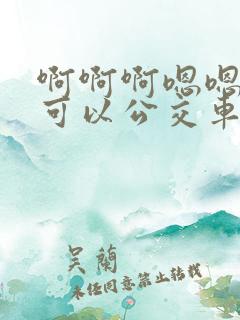 啊啊啊嗯嗯
可以公交车
吴兰
未经同意禁止转载